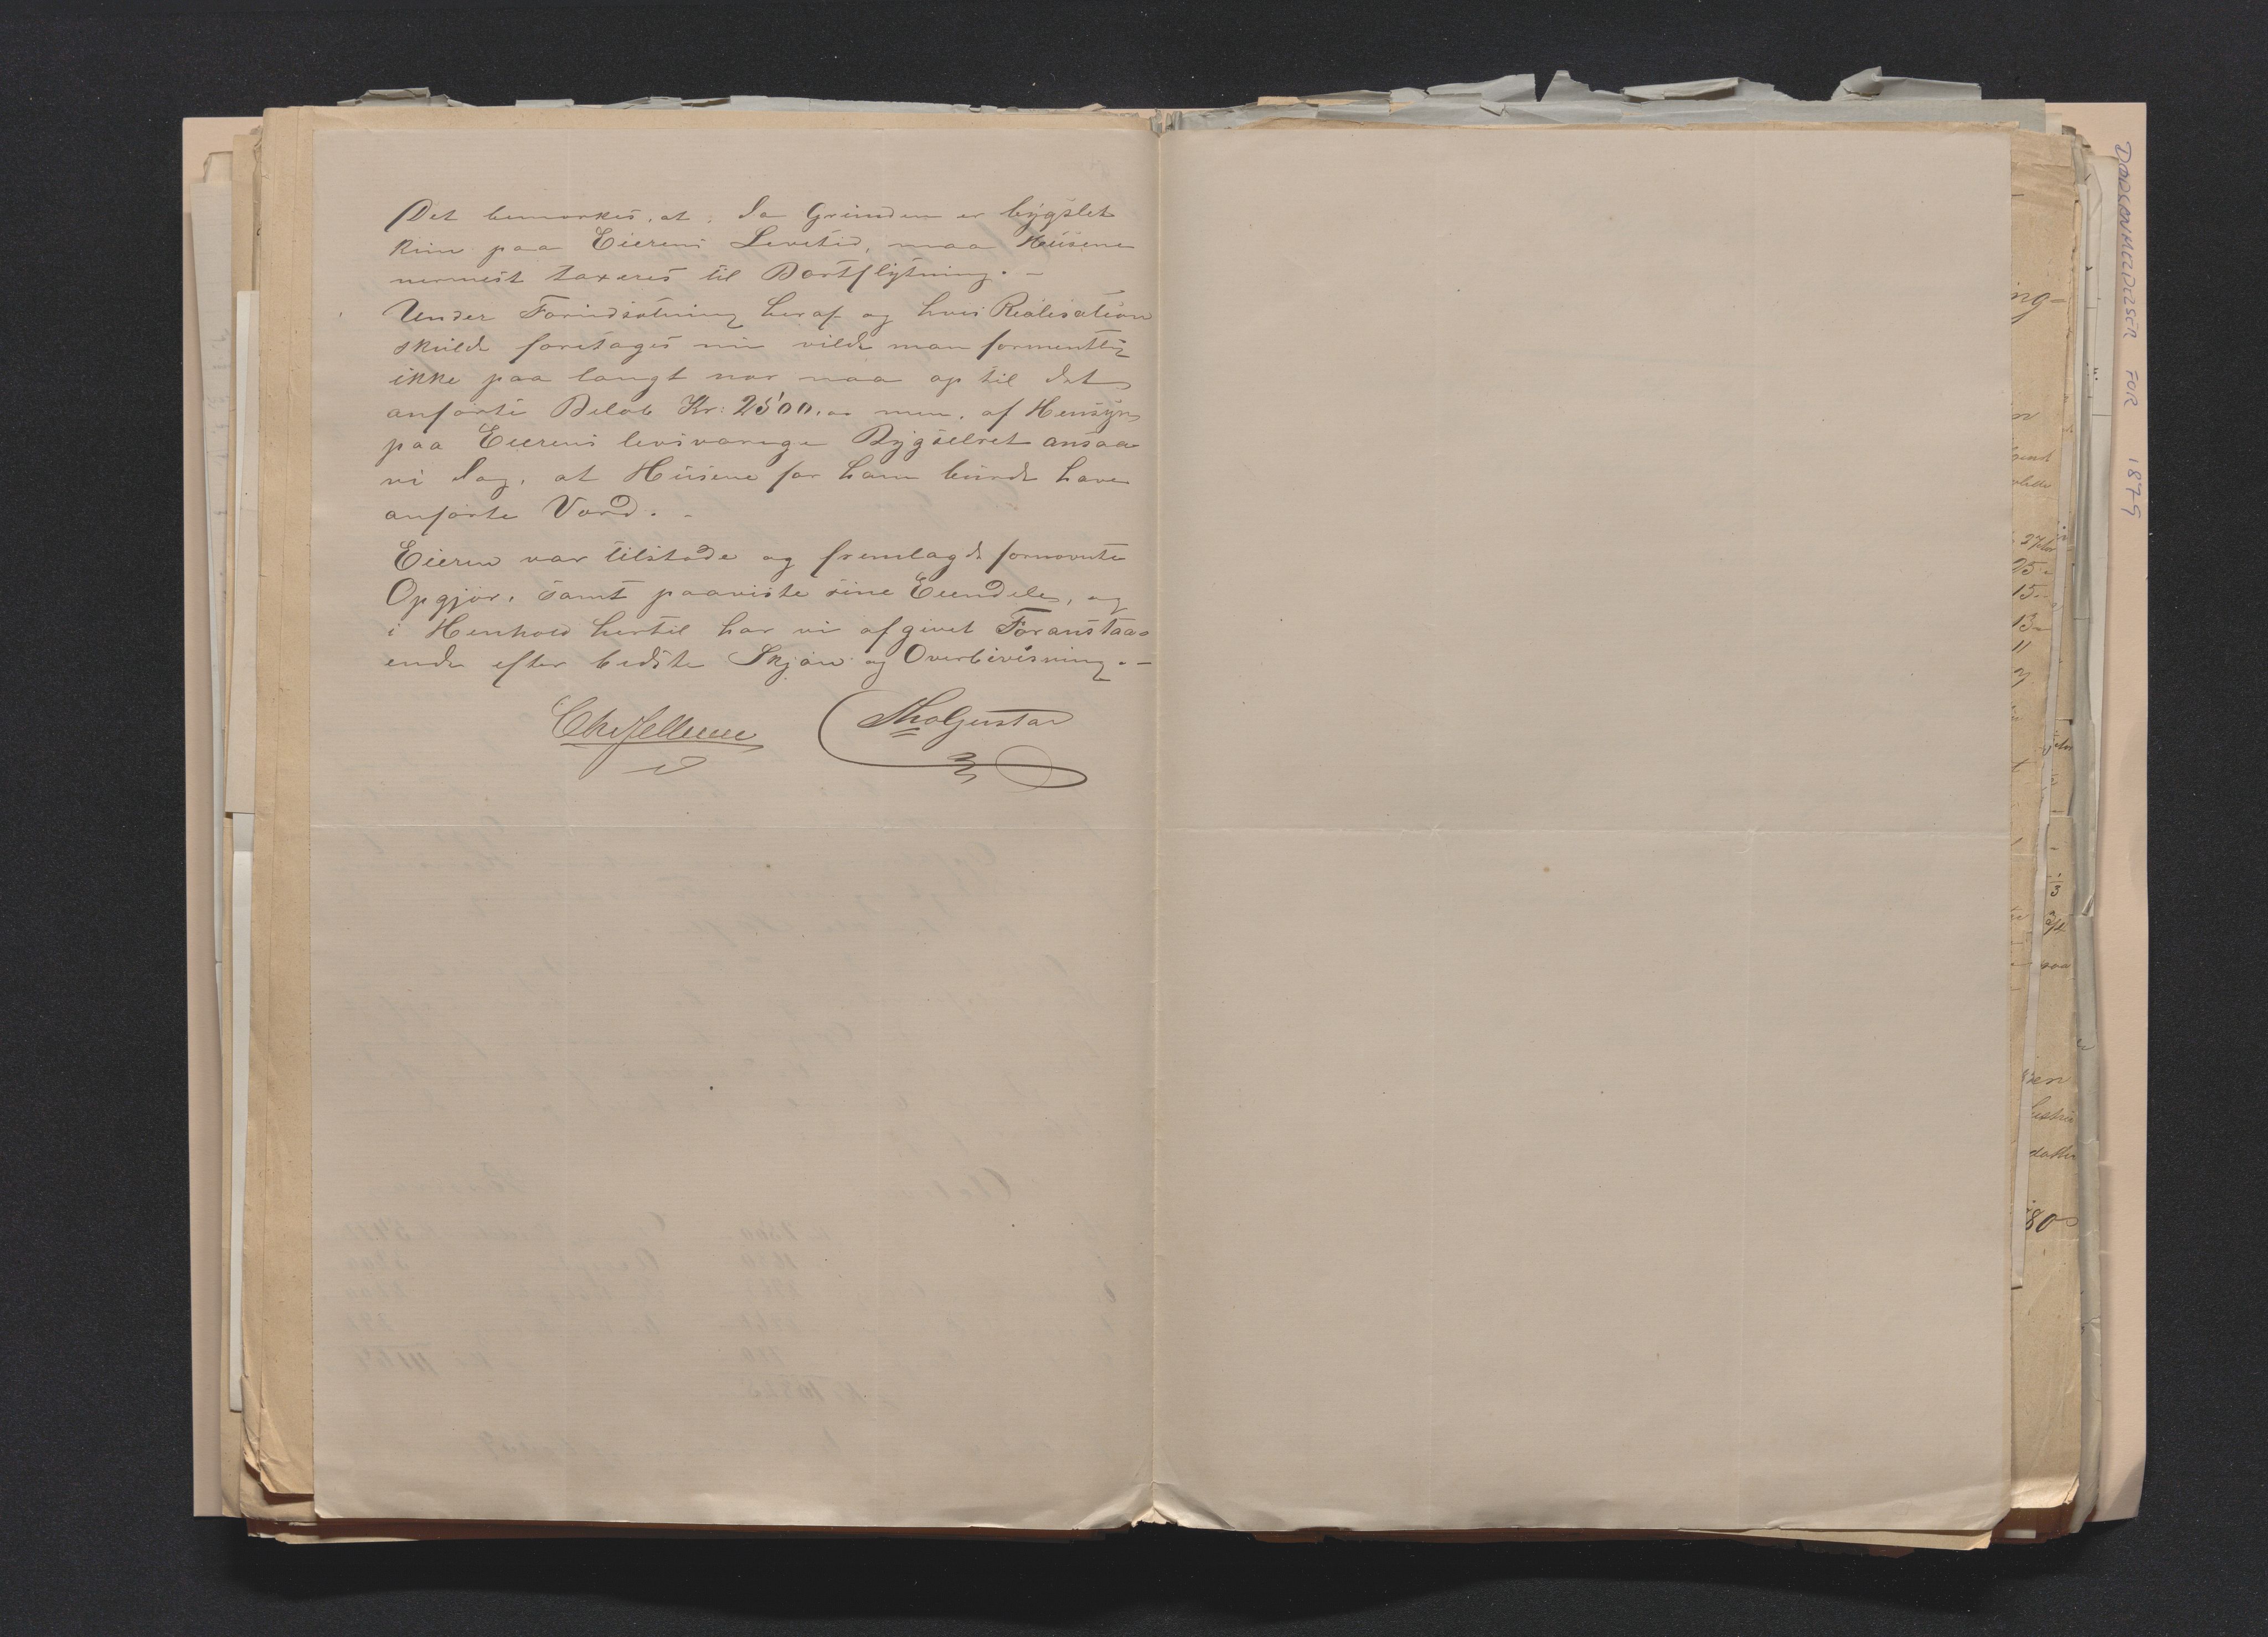 Det bemærkes, at, da Grunden er bygslet
kun paa Eierens Levetid, maa Husene
nærmest taxeres til Bortflytning. -
Under Forudsætning heraf og hvis Realisation
skulde foretages nu vilde man formentlig
ikke paa langt nær naa op til det
anførte Beløb Kr: 2500.00 men, af Hensyn
paa Eierens livsvarige Bygselret ansaa
vi dog, at Husene for ham burde have
anførte Værd. -
Eieren var tilstæde og fremlagde fornævnte
Opgjør, samt paaviste sine Eiendele, og
i Henhold hertil har vi afgivet Foranstaa-
ende efter bedste Skjøn og Overbevisning. -
Chr Jellum
Tho Gustav
DØDSANMELDELSER FOR 1879